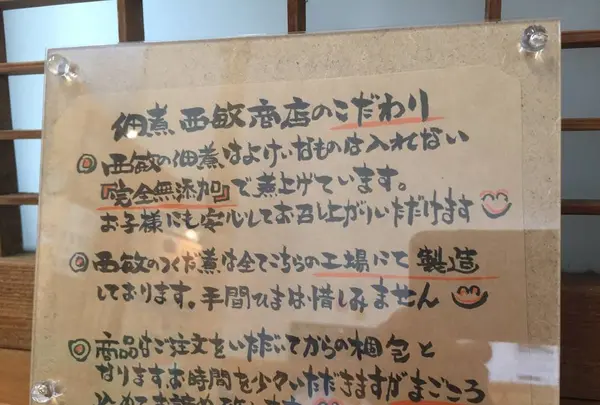 佃煮 西敏商店のこだわり
◎西敏の佃煮はよけいなものは入れない
『完全無添加』で煮上げています。
お子様にも安心してお召し上がりいただけます
◎西敏のつくだ煮は全てこちらの工場にて製造
しております。手間ひまは惜しみません
◎商品はご注文をいただいてからの梱包と
なりますお時間を少々いただきますがまごころ